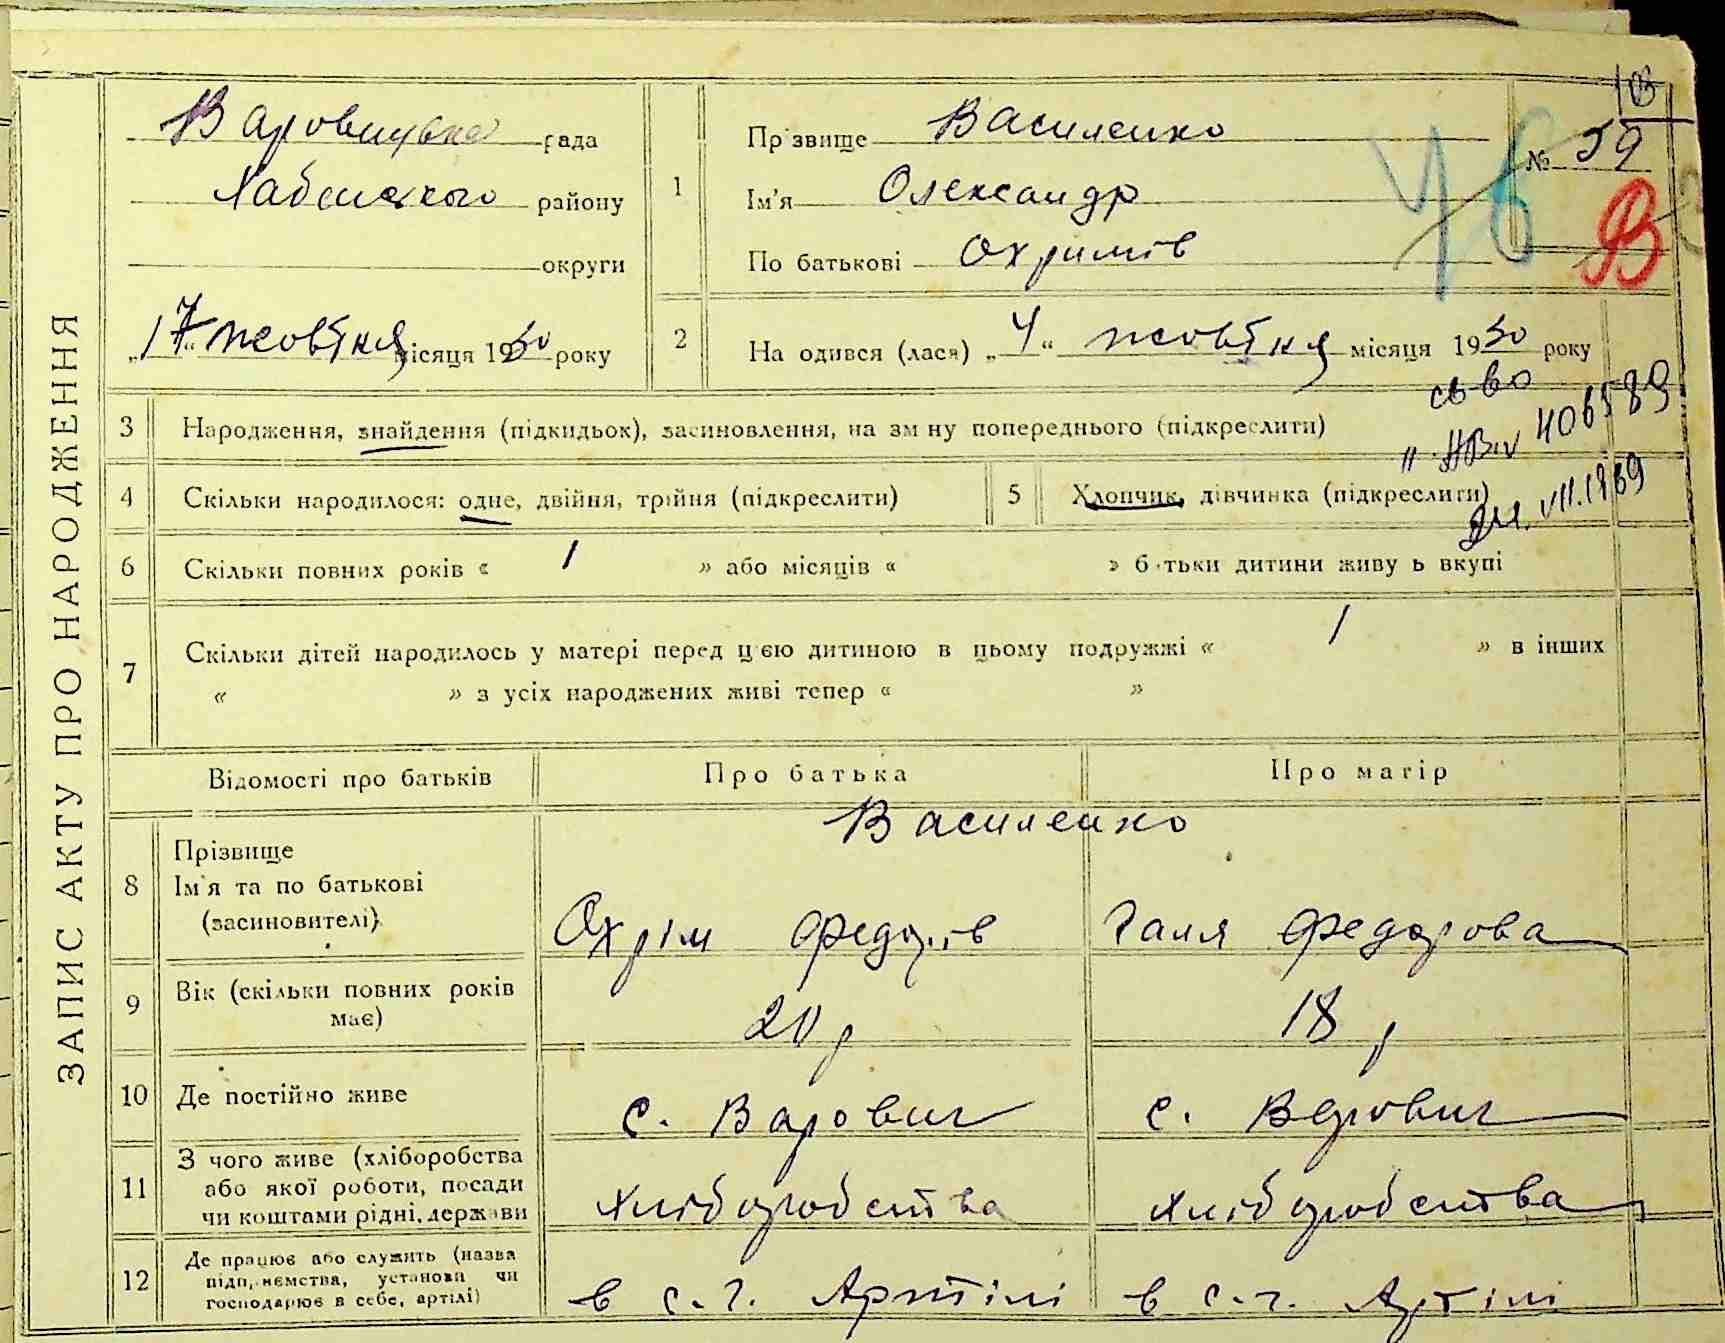 ЗАПИС АКТУ ПРО НАРОДЖЕННЯ
Варовицька рада
Хабенського району
округи
„17“ жовтня місяця 1930 року
1
Прізвище Василенко
Ім'я Олександр
По батькові Охримів
№ 59
46
В
2
На одився (лася) „4“ жовтня місяця 1930 року
св-во
3 Народження, знайдення (підкидьок), засиновлення, на зм ну попереднього (підкреслити)
4 Скільки народилося: одне, двійня, трійня (підкреслити)
5 Хлопчик, дівчинка (підкреслити)
VII.1969
6 Скільки повних років « 1 » або місяців « » б тьки дитини живу ь вкупі
7 Скільки дітей народилось у матері перед цією дитиною в цьому подружжі « 1 » в інших
« » з усіх народжених живі тепер « »
Відомості про батьків Про батька Про матір
Василенко
8 Прізвище
Ім'я та по батькові
(засиновителі)
Охрім Федорів Галя Федорова
9 Вік (скільки повних років
має)
20 р 18 р
10 Де постійно живе
с. Варовичі с. Варовичі
11 З чого живе (хліборобства
або якої роботи, посади
чи коштами рідні, держави
хліборобства хліборобства
12 Де працює або служить (назва
підприємства, установи чи
господарює в себе, артілі)
в с.-г. Артілі в с.-г. Артілі